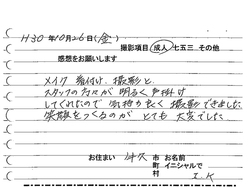 H30年10月26日(金)
撮影項目 成人 七五三 その他
感想をお願いします
メイク 着付け、撮影と
スタッフの方々が明るく声掛け
してくれたので 気持ち良く撮影できました
笑顔をつくるのが とても大変でした
お住まい 市 お名前
町 イニシャルで
村 I.K